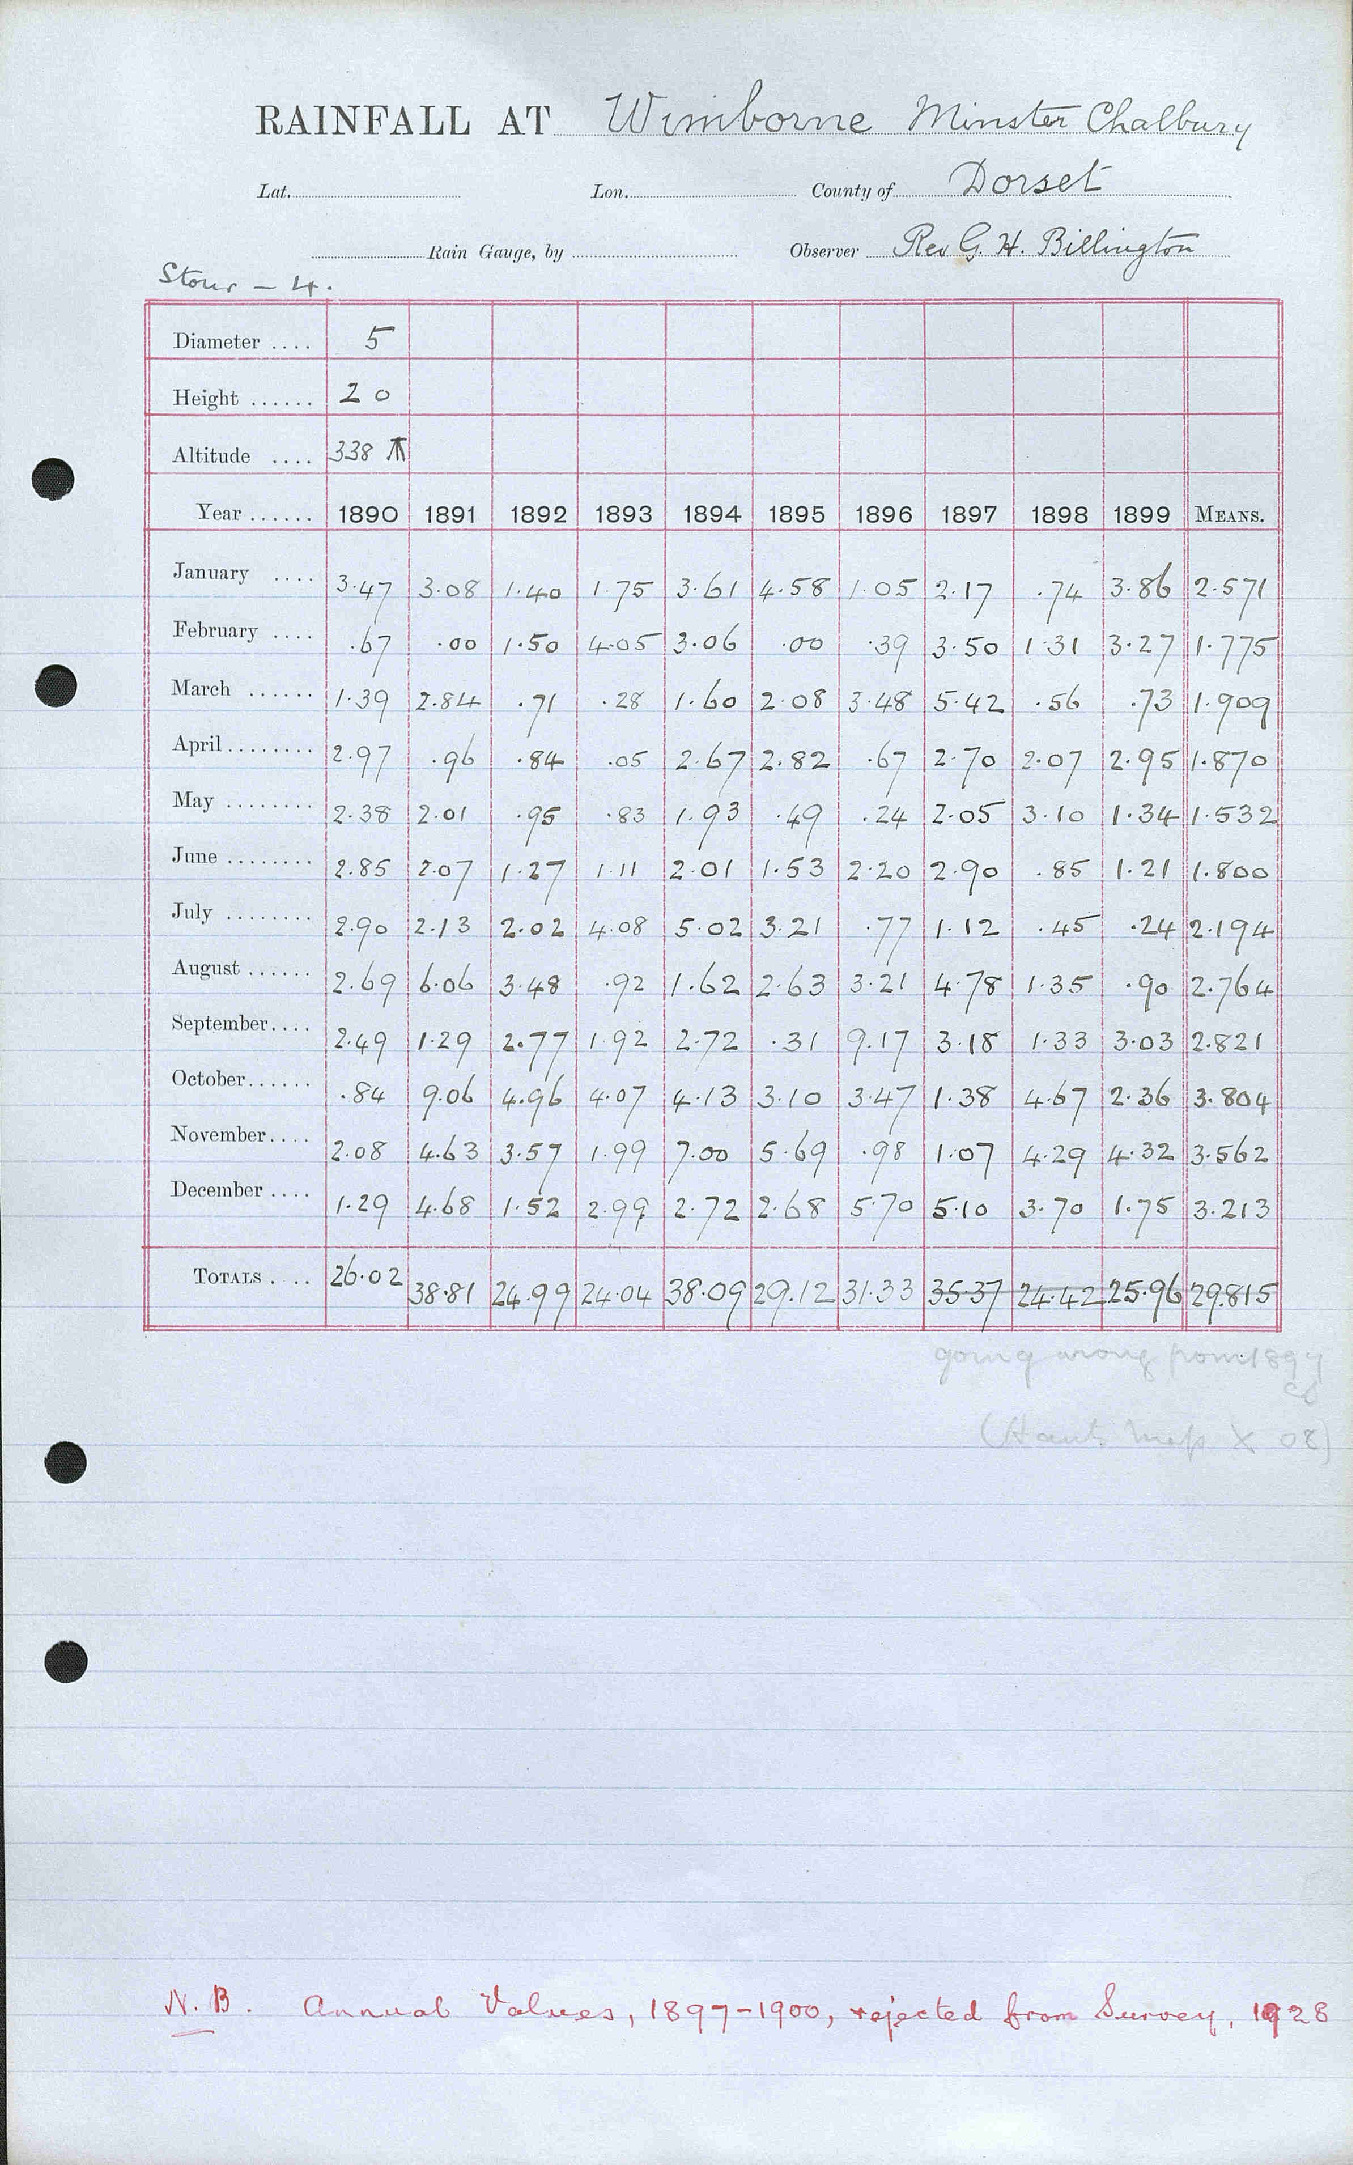 RAINFALL AT Wimborne Minster Chalbury
Lat. Lon. County of Dorset
Rain Gauge, by Observer Rev G. H. Billington
Stour - 4.
Diameter .... 5
Height ...... 20
Altitude .... 338
Year ...... 1890 1891 1892 1893 1894 1895 1896 1897 1898 1899 MEANS.
January .... 3.47 3.08 1.40 1.75 3.61 4.58 1.05 2.17 .74 3.86 2.571
February .... .67 .00 1.50 4.05 3.06 .00 .39 3.50 1.31 3.27 1.775
March ...... 1.39 2.84 .71 .28 1.60 2.08 3.48 5.42 .56 .73 1.909
April ........ 2.97 .96 .84 .05 2.67 2.82 .67 2.70 2.07 2.95 1.870
May ........ 2.38 2.01 .95 .83 1.93 .49 .24 2.05 3.10 1.34 1.532
June ........ 2.85 2.07 1.27 1.11 2.01 1.53 2.20 2.90 .85 1.21 1.800
July ........ 2.90 2.13 2.02 4.08 5.02 3.21 .77 1.12 .45 .24 2.194
August ...... 2.69 6.06 3.48 .92 1.62 2.63 3.21 4.78 1.35 .90 2.764
September.... 2.49 1.29 2.77 1.92 2.72 .31 9.17 3.18 1.33 3.03 2.821
October...... .84 9.06 4.96 4.07 4.13 3.10 3.47 1.38 4.67 2.36 3.804
November.... 2.08 4.63 3.57 1.99 7.00 5.69 .98 1.07 4.29 4.32 3.562
December .... 1.29 4.68 1.52 2.99 2.72 2.68 5.70 5.10 3.70 1.75 3.213
TOTALS .... 26.02 38.81 24.99 24.04 38.09 29.12 31.33 35.37 24.42 25.96 29.815
going wrong from 1897
(Hants map X 08)
N.B. Annual Values, 1897-1900, rejected from Survey, 1928